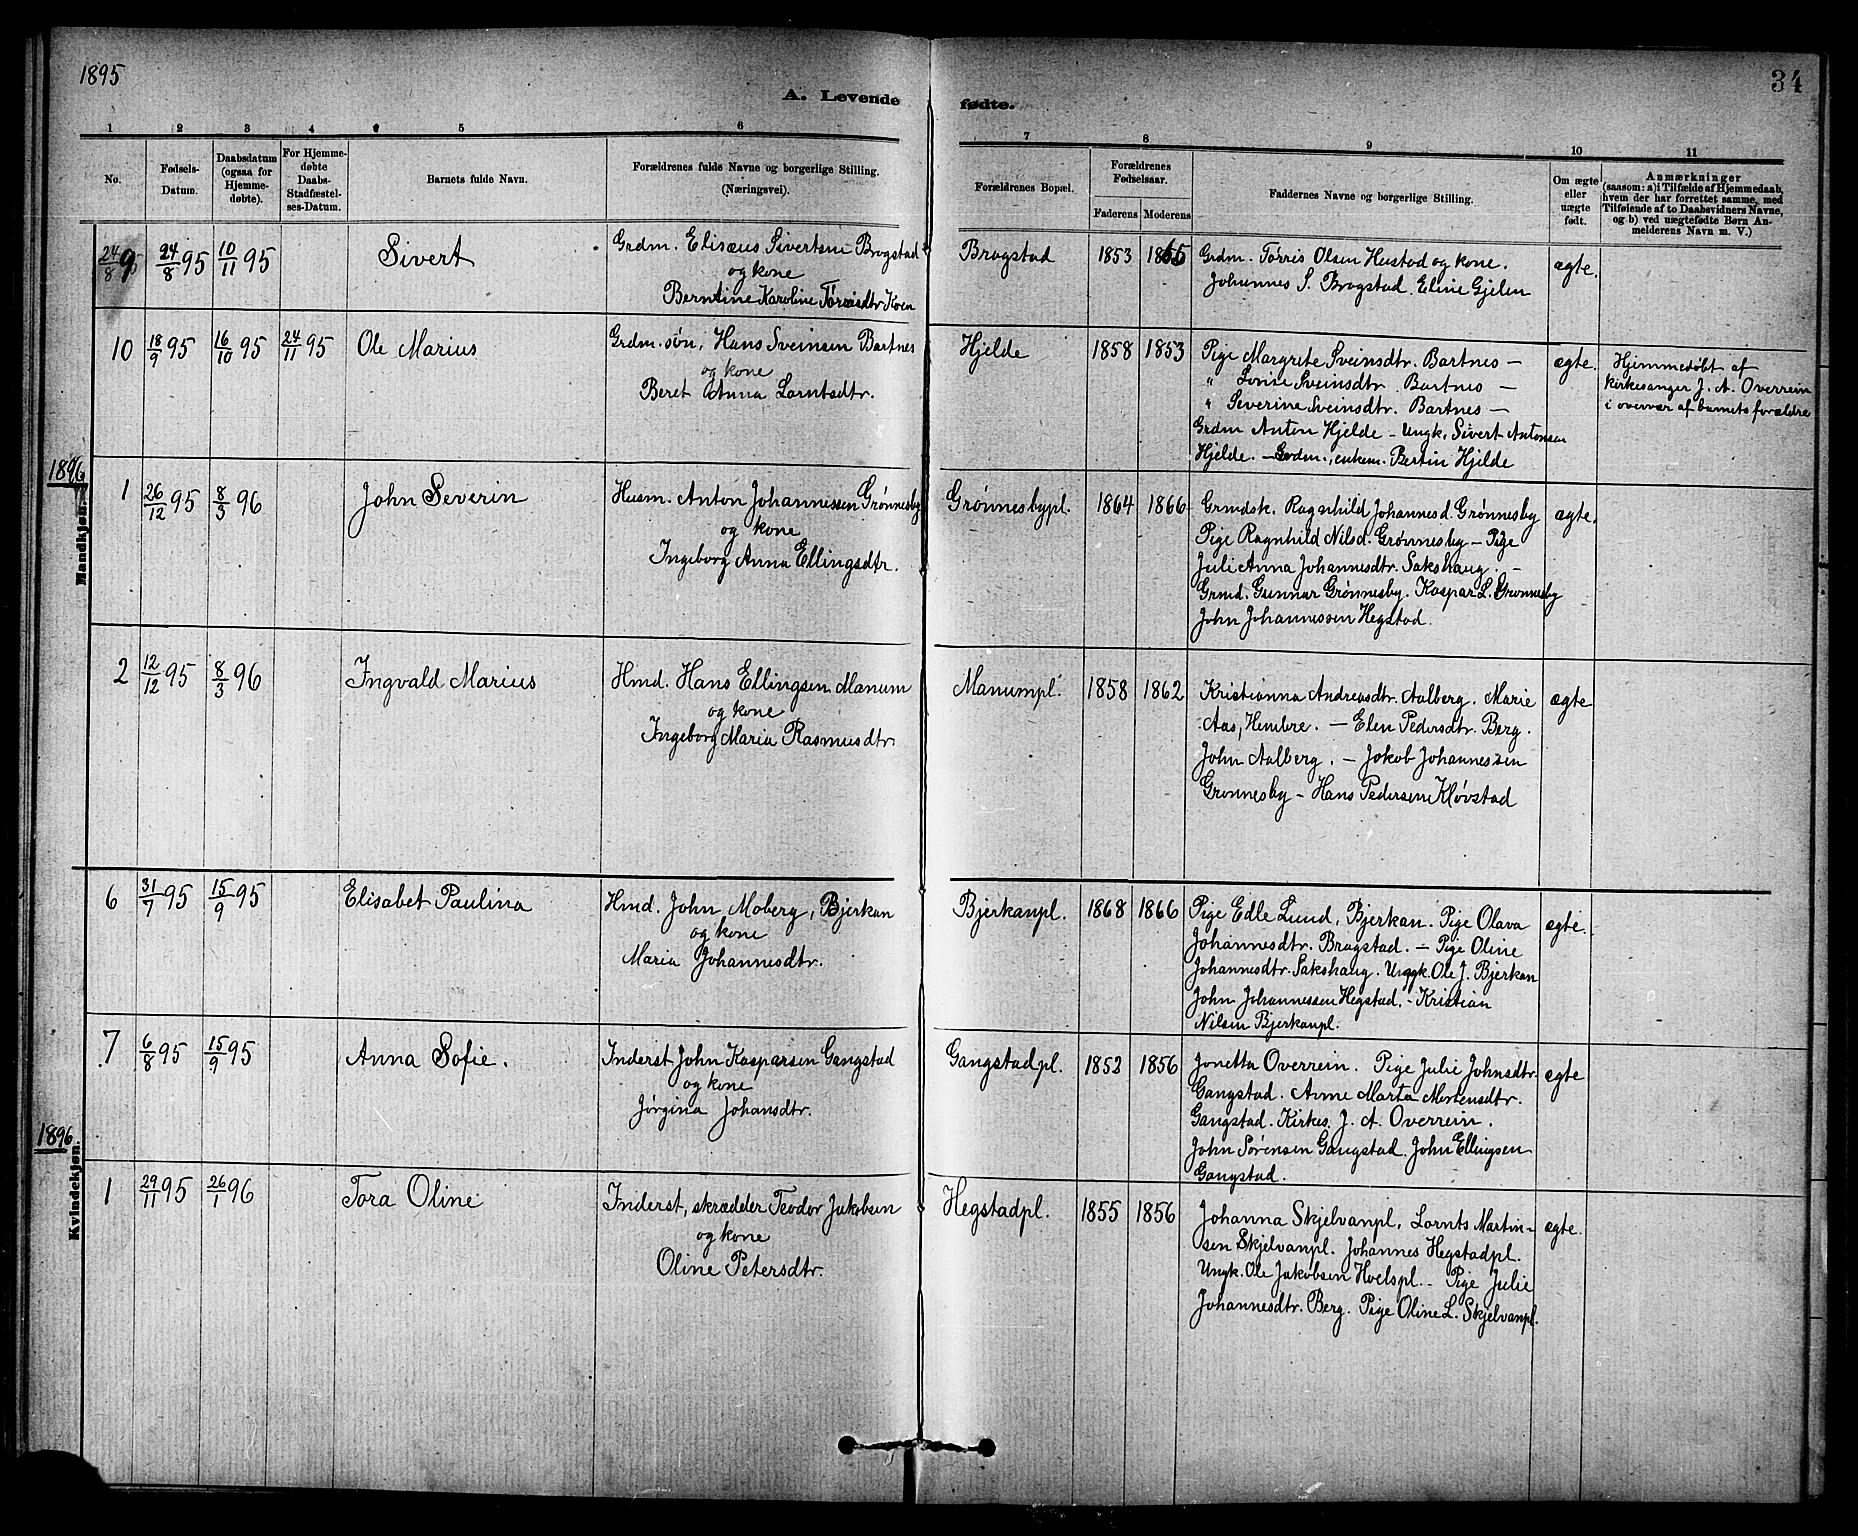 1895
34
A. Levende fødte.
1 2 3 4 5 6 7 8 9 10 11
No.
Fødsels-
Datum.
Daabsdatum
(ogsaa for
Hjemme-
døbte).
For Hjemme-
døbte
Daabs-
Stadfæstel-
ses-Datum.
Barnets fulde Navn.
Forældrenes fulde Navne og borgerlige Stilling.
(Næringsvei).
Forældrenes Bopæl.
Forældrenes
Fødselsaar.
Faderens Moderens
Faddernes Navne og borgerlige Stilling.
Om ægte
eller
uægte
født.
Anmærkninger
(saasom: a) i Tilfælde af Hjemmedaab,
hvem der har forrettet samme, med
Tilføiende af to Daabsvidners Navne,
og b) ved uægtefødte Børn An-
melderens Navn m. V.)
9 24/8 95 10/11 95 Sivert
Grdm. Elisæus Sivertsen Brogstad
og kone
Berntine Karoline Tørrisdtr
Brogstad 1853 1865
Grdm. Tørris Olsen Hustad og kone.
Johannes S. Brogstad. Eline Gjelen
ægte.
10 18/9 95 16/10 95 24/11 95 Ole Marius
Grdm. søn, Hans Sveinsen Bartnes
og kone
Beret Anna Lorntsdtr.
Hjelde 1858 1853
Pige Margrete Sveinsdtr. Bartnes —
" Lovise Sveinsdtr. Bartnes —
" Severine Sveinsdtr. Bartnes —
Grdm Anton Hjelde - Ungk. Sivert Antonsen
Hjelde. - Grdm., enkem. Bertin Hjelde
ægte.
Hjemmedøbt af
kirkesanger J. A. Overrein
i overvær af barnets forældre
1896
Mandkjøn.
1 26/12 95 8/3 96 John Severin
Husm. Anton Johannessen Grønnesby
og kone
Ingeborg Anna Ellingsdtr.
Grønnesbypl. 1864 1866
Grmdsk. Ragnhild Johannesd. Grønnesby
Pige Ragnhild Nilsd. Grønnesby - Pige
Juli Anna Johannesdtr. Sakshaug. -
Grmd. Gunnar Grønnesby. Kaspar L. Grønnesby
John Johannessen Hegstad.
ægte.
2 12/12 95 8/3 96 Ingvald Marius
Hmd. Hans Ellingsen Manum
og kone
Ingeborg Maria Rasmusdtr.
Manumpl. 1858 1862
Kristianna Andreasdtr. Aalberg. Marie
Aas, Hembre. - Elen Pedersdtr. Berg.
John Aalberg. - Jakob Johannessen
Grønnesby - Hans Pedersen Kløvstad
ægte
6 31/7 95 15/9 95 Elisabet Paulina
Hmd. John Moberg, Bjerkan
og kone
Maria Johannesdtr.
Bjerkanpl. 1868 1866
Pige Edle Lund, Bjerkan. Pige Olava
Johannesdtr. Brogstad. - Pige Oline
Johannesdtr. Sakshaug. Unggk. Ole J. Bjerkan
John Johannessen Hegstad. - Kristian
Nilsen Bjerkanpl.
ægte.
7 6/8 95 15/9 95 Anna Sofie.
Inderst John Kasparsen Gangstad
og kone
Jørgina Johansdtr.
Gangstadpl. 1852 1856
Jonetta Overrein. Pige Julie Johnsdtr.
Gangstad. Anne Marta Mortensdtr.
Gangstad. Kirkes. J. A. Overrein.
John Sørensen Gangstad. John Ellingsen
Gangstad.
ægte
1896
Kvindekjøn.
1 29/11 95 26/1 96 Tora Oline
Inderst, skrædder Teodor Jakobsen
og kone
Oline Petersdtr.
Hegstadpl. 1855 1856
Johanna Skjelvanpl, Lornts Martin-
sen Skjelvanpl. Johannes Hegstadpl.
Ungk. Ole Jakobsen Hoelspl. - Pige Julie
Johannesdtr. Berg. Pige Oline L. Skjelvanpl.
ægte.